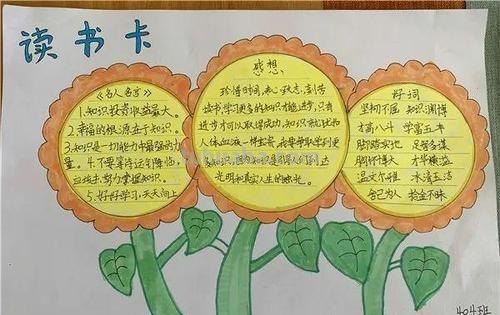 读书卡
《名人名言》
1.知识投资收益最大。
2.幸福的根源在于知识。
3.知识是一切能力中最强的力
量。4.不要等待运气降临,
应该去努力掌握知识。
5.好好学习,天天向上
感想
珍惜时间,
读书学习更多的知识才能进步,只有
进步才可以取得成功,知识就犹如
人体血液一样宝贵,
光明和真实人生的
好词
坚韧不屈 知识渊博
才高八斗 学富五车
脚踏实地 足智多谋
胸怀博大 才华横溢
温文尔雅 冰清玉洁
舍己为人 拾金不昧
404班